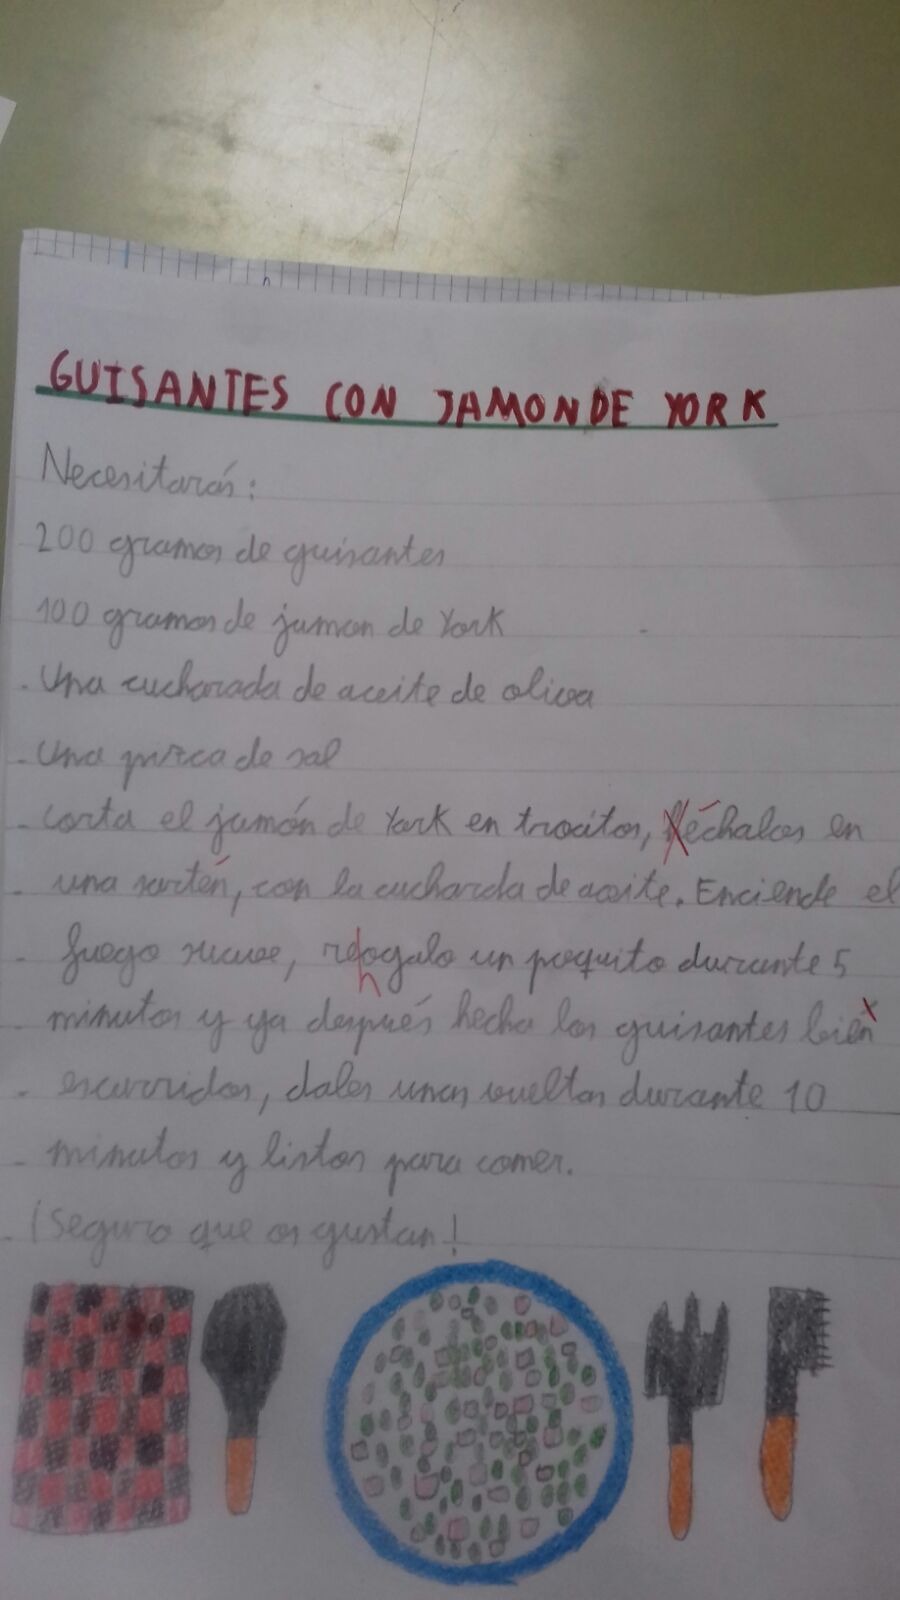 GUISANTES CON JAMON DE YORK
Necesitarás:
200 gramos de guisantes
100 gramos de jamon de York
Una cucharada de aceite de oliva
Una pizca de sal
corta el jamón de York en trocitos, échalos en
una sartén, con la cucharda de aceite. Enciende el
fuego suave, rehogalo un poquito durante 5
minutos y ya después hecha los guisantes bien
escurridos, dales unas vueltas durante 10
minutos y listos para comer.
¡Seguro que os gustan!